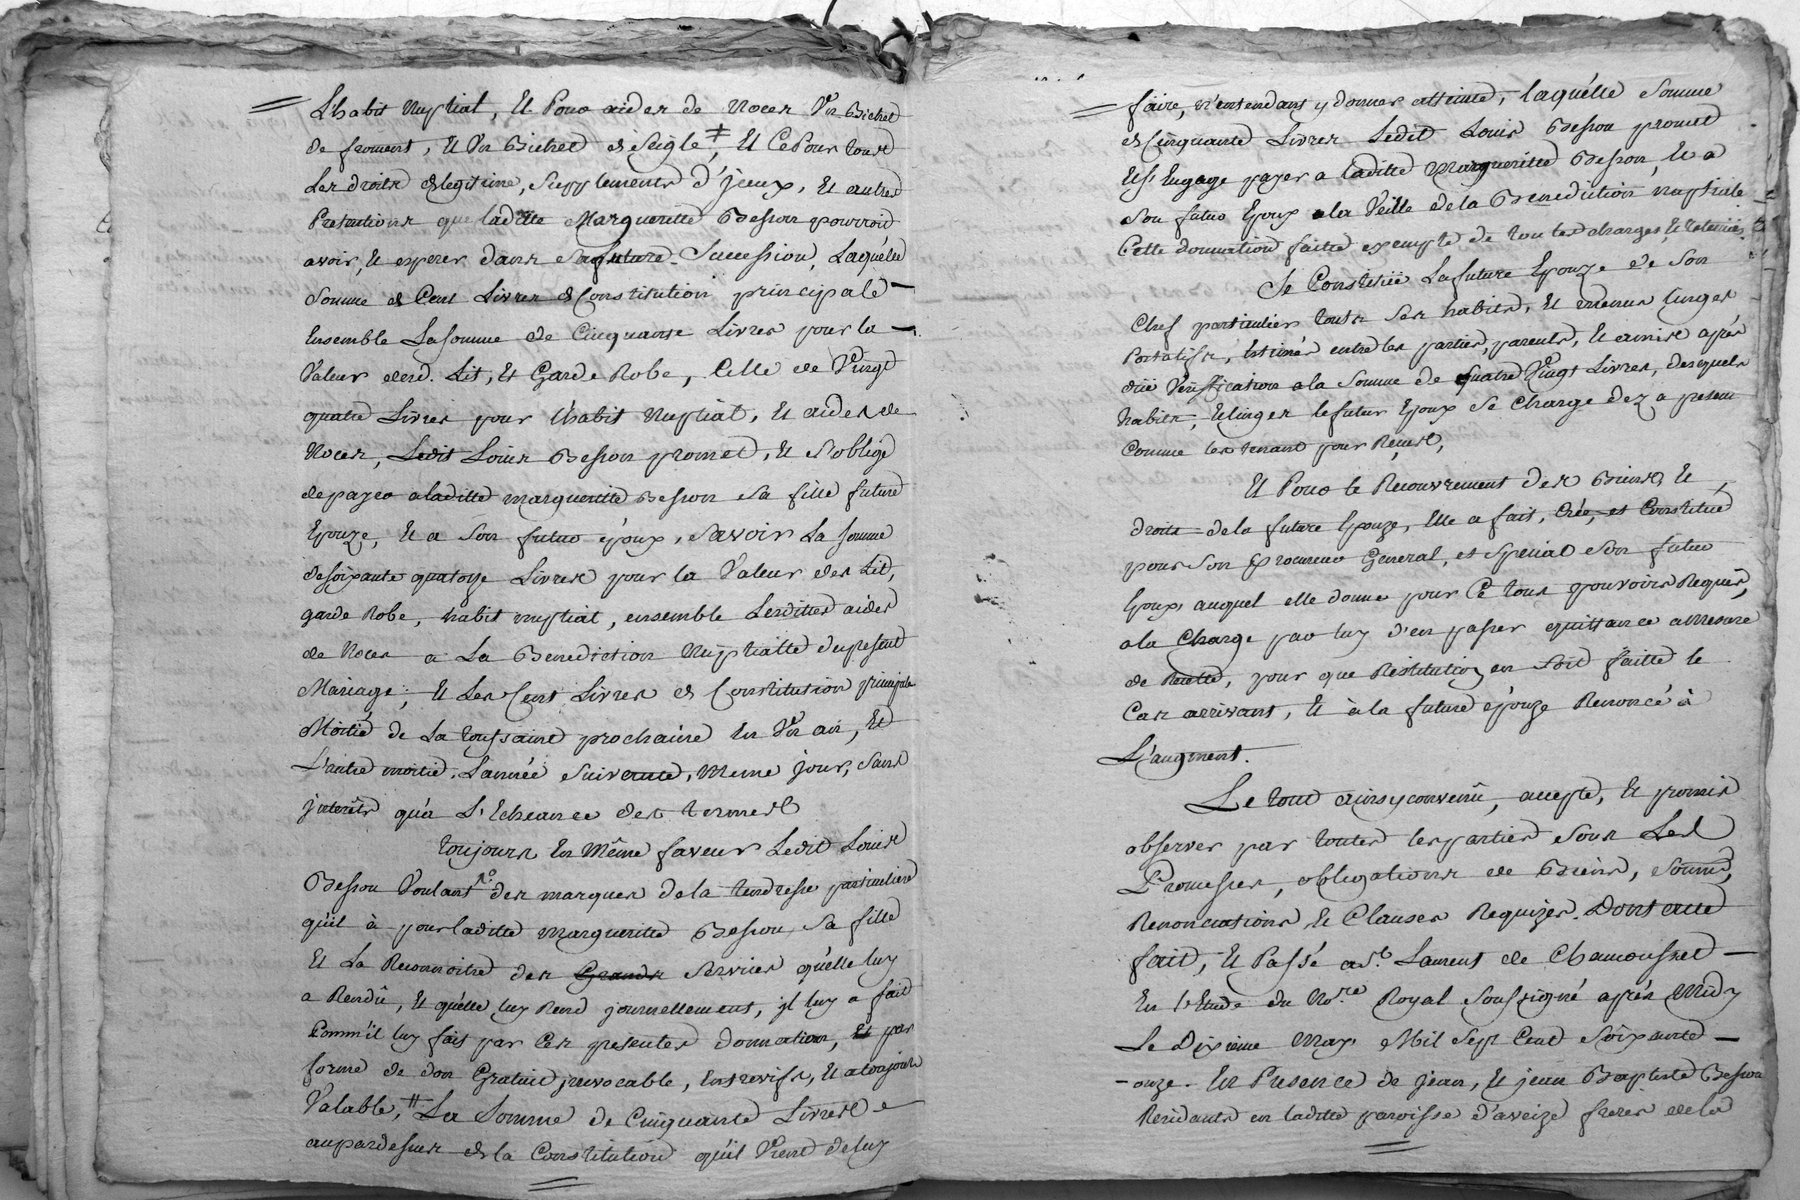 L'habit Nuptial, Et Pour aider de Noces Vn Bichet
de froment, Et Vn Bichet de Seigle ≠, Et Ce Pour tous
Les droits de legitime, Supplements d'jceux, Et autres
Pretentions que laditte Margueritte Besson pourroit
avoir, Et esperer dans sa future Succession, Laquelle
Somme de Cent Livres de Constitution principale
Ensemble La Somme de Cinquante Livres pour la
Valeur desd. Lit, Et Garde Robe, Celle de Vingt
quatre Livres pour l'habit Nuptial, Et aides de
Noces, Ledit Louis Besson promet, Et S'oblige
de payer a laditte margueritte Besson sa fille future
Epouze, Et a Son futur époux, Savoir La somme
de soixante quatorze Livres pour la Valeur des Lit,
garde Robe, habit nuptial, ensemble Lesdittes aides
de Noces a La Benediction Nuptialle du present
Mariage; Et Les Cent Livres de Constitution principale
Moitié de La toussaint prochaine En Vn an, Et
L'autre moitié L'année Suivante, Meme jour, Sans
jnterêts qu'a L'Echeance des termes
toujours En Même faveur Ledit Louis
Besson Voulant des marques de la tendresse particuliere
qu'il à pour laditte Margueritte Besson, Sa fille
Et La Reconnoitre des Grands Services qu'elle luy
a Rendû, Et qu'elle luy Rend journellement, jl luy a fait
Comm'il luy fait par Ces presentes donnation, Et par
forme de don Gratuit jrrevocable, Entrevifs, Et a toujours
Valable, # La Somme de Cinquante Livres
au par dessus de la Constitution qu'il Vient de luy
faire, n'entendant y donner atteinte, laquelle Somme
de Cinquante Livres Ledit Louis Besson promet
Et s'Engage payer a laditte Margueritte Besson, Et a
Son futur Epoux a la Veille de la Benediction nuptiale
Cette donnation faitte exempte de toutes charges, Et
Se Constituë La future Epouze de Son
Chef particulier touts Ses habits, Et menus linges
Portatifs, Estimés entre les parties, parents, Et amis après
düe Vérification a la Somme de quatre Vingt Livres, desquels
habits, Et linges le futur Epoux Se Charge dez a present
Comme les tenant pour Reçus,
Et Pour le Recouvrement des Biens, Et
droits de la future Epouze, Elle a fait, Créé, et Constitué
pour Son Procureur General, et Special Son futur
Epoux, auquel elle donne pour Ce tous pouvoirs Requis,
a la Charge par luy d'en passer quittance a mesure
de Recette, pour que Restitution en Soit faitte le
Cas arrivant, Et à la future épouze Renoncé à
L'augment.
Le tout ainsy convenû, accepté, Et promis
observer par toutes les parties Sous Les
Promesses, obligations de Biens, Soumis,
Renonciations Et Clauses Requizes. Dont acte
fait, Et Passé a St. Laurent de Chamousset
En l'Etude du Nore. Royal Soussigné après Midy
Le dixieme May Mil Sept Cent Soixante
onze. En Presence de jean, Et jean Baptiste Besson
Residants en laditte paroisse d'aveize freres de la